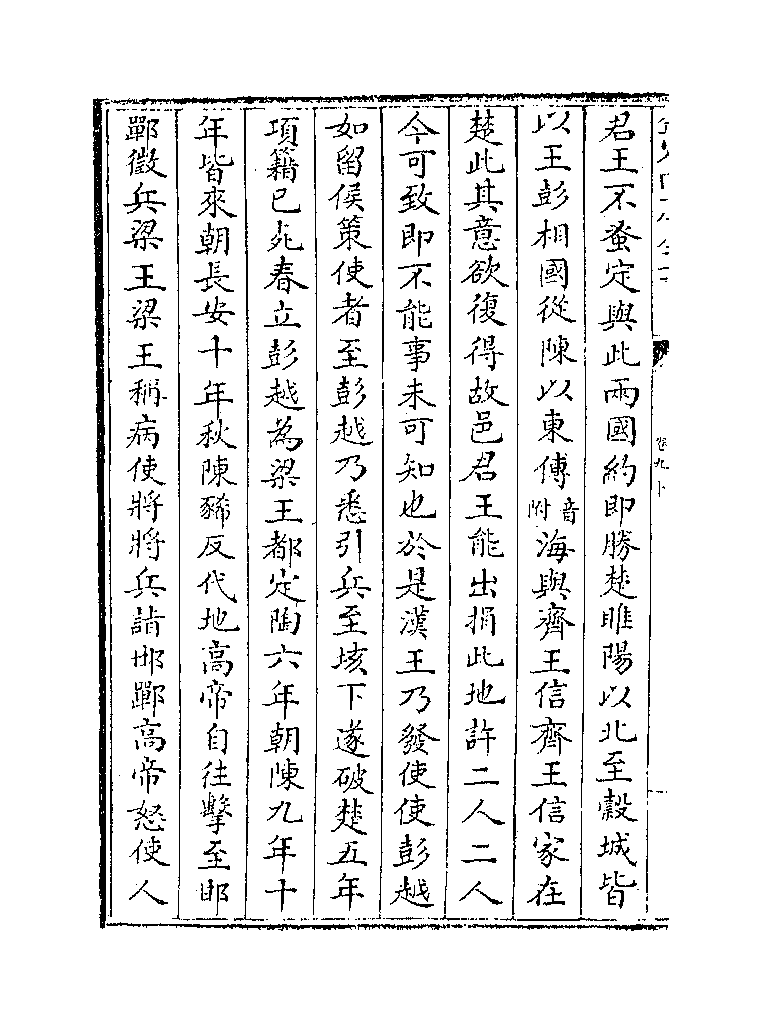 君王不蚤定與此兩國約即勝楚睢陽以北至穀城皆
以王彭相國從陳以東傅音附海與齊王信齊王信家在
楚此其意欲復得故邑君王能出捐此地許二人二人
今可致即不能事未可知也於是漢王乃發使使彭越
如留侯策使者至彭越乃悉引兵至垓下遂破楚五年
項籍已死春立彭越為梁王都定陶六年朝陳九年十
年皆來朝長安十年秋陳豨反代地高帝自往擊至邯
鄲徵兵梁王梁王稱病使將將兵詣邯鄲高帝怒使人
卷九下